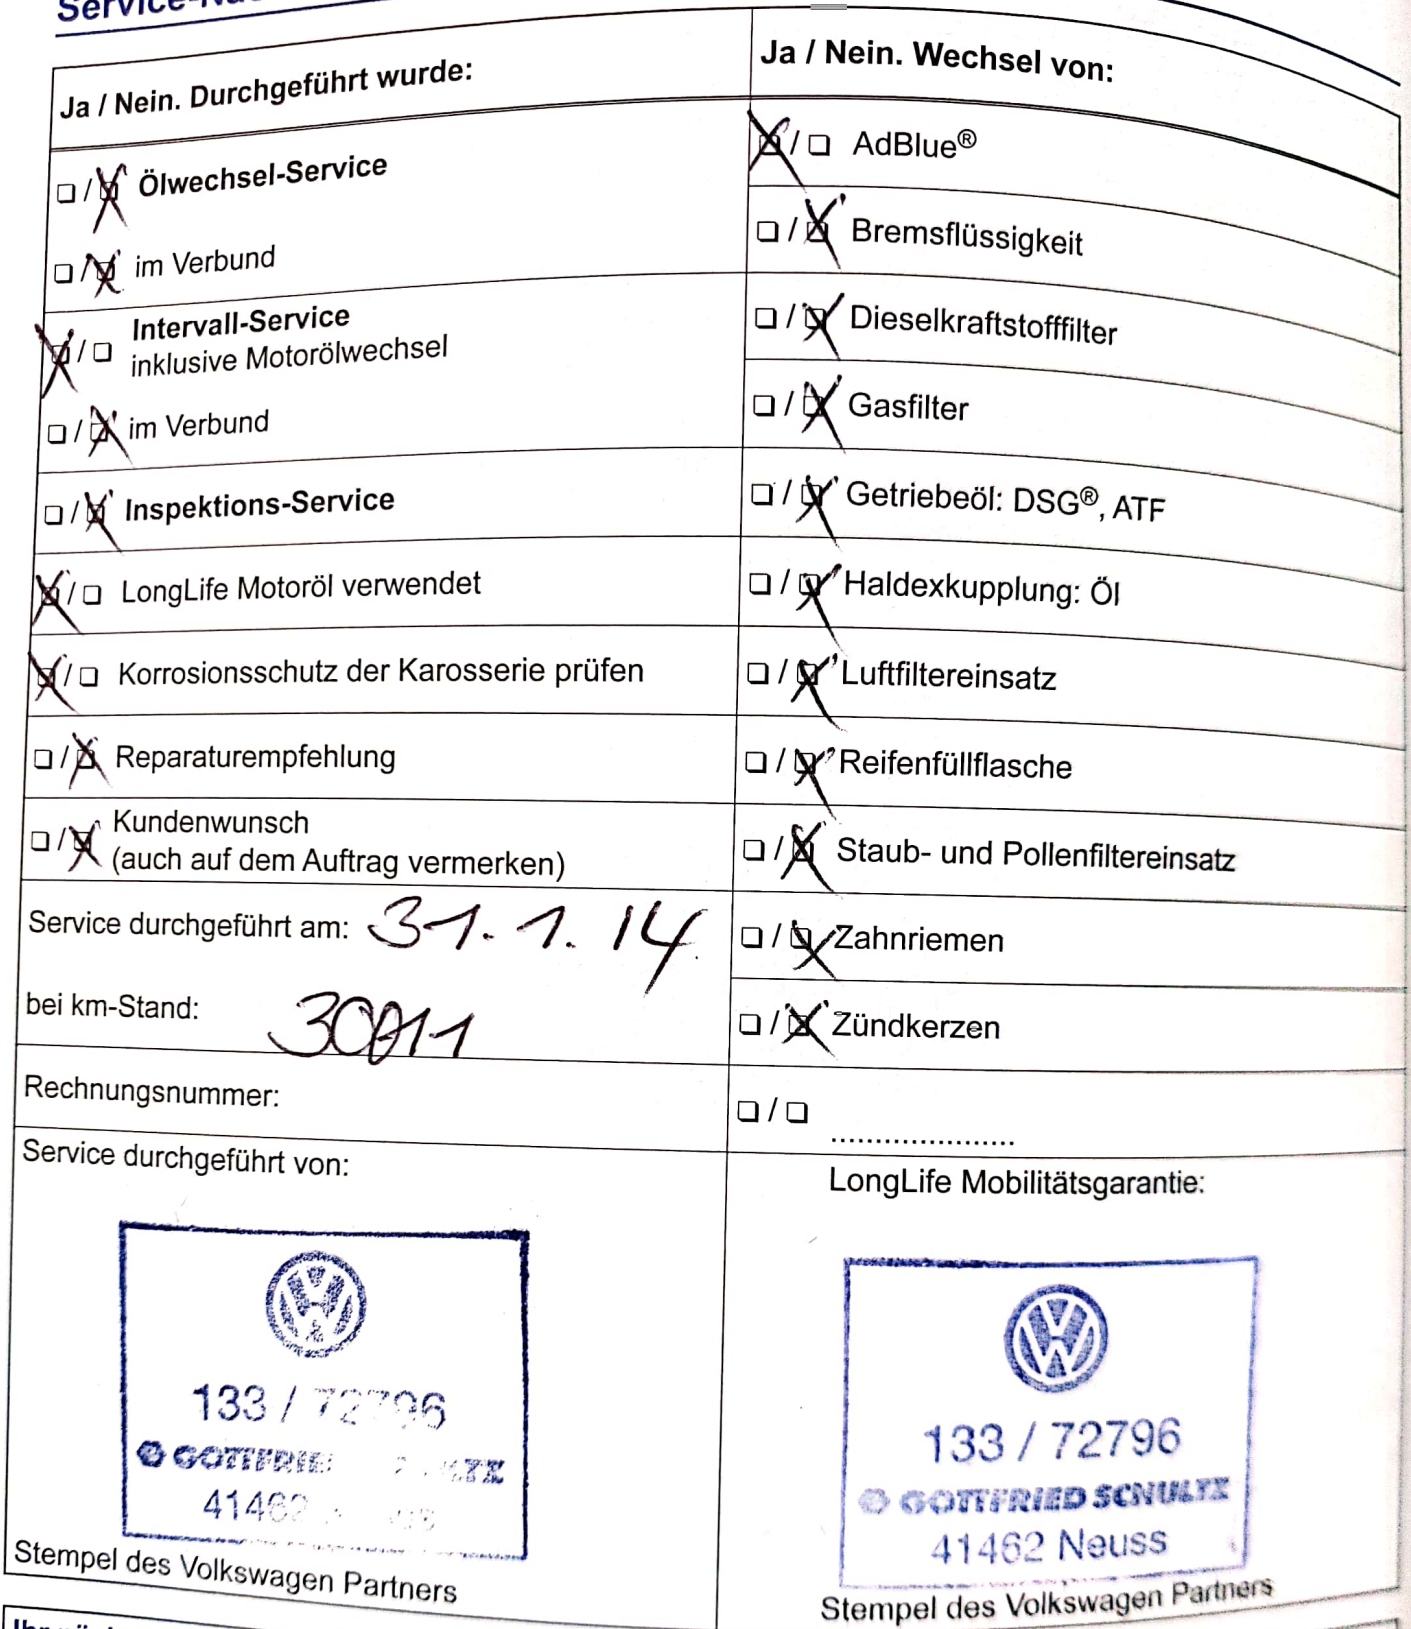 Ja / Nein. Durchgeführt wurde:
☐ / ☒ Ölwechsel-Service
☐ / ☒ im Verbund
☒ / ☐ Intervall-Service
inklusive Motorölwechsel
☐ / ☒ im Verbund
☐ / ☒ Inspektions-Service
☒ / ☐ LongLife Motoröl verwendet
☒ / ☐ Korrosionsschutz der Karosserie prüfen
☐ / ☒ Reparaturempfehlung
☐ / ☒ Kundenwunsch
(auch auf dem Auftrag vermerken)
Service durchgeführt am: 31.1.14
bei km-Stand: 30011
Rechnungsnummer:
Service durchgeführt von:
133 / 72796
41462
Stempel des Volkswagen Partners
Ja / Nein. Wechsel von:
☒ / ☐ AdBlue®
☐ / ☒ Bremsflüssigkeit
☐ / ☒ Dieselkraftstofffilter
☐ / ☒ Gasfilter
☐ / ☒ Getriebeöl: DSG®, ATF
☐ / ☒ Haldexkupplung: Öl
☐ / ☒ Luftfiltereinsatz
☐ / ☒ Reifenfüllflasche
☐ / ☒ Staub- und Pollenfiltereinsatz
☐ / ☒ Zahnriemen
☐ / ☒ Zündkerzen
☐ / ☐ .....................
LongLife Mobilitätsgarantie:
133 / 72796
GOTTFRIED SCHULTZ
41462 Neuss
Stempel des Volkswagen Partners